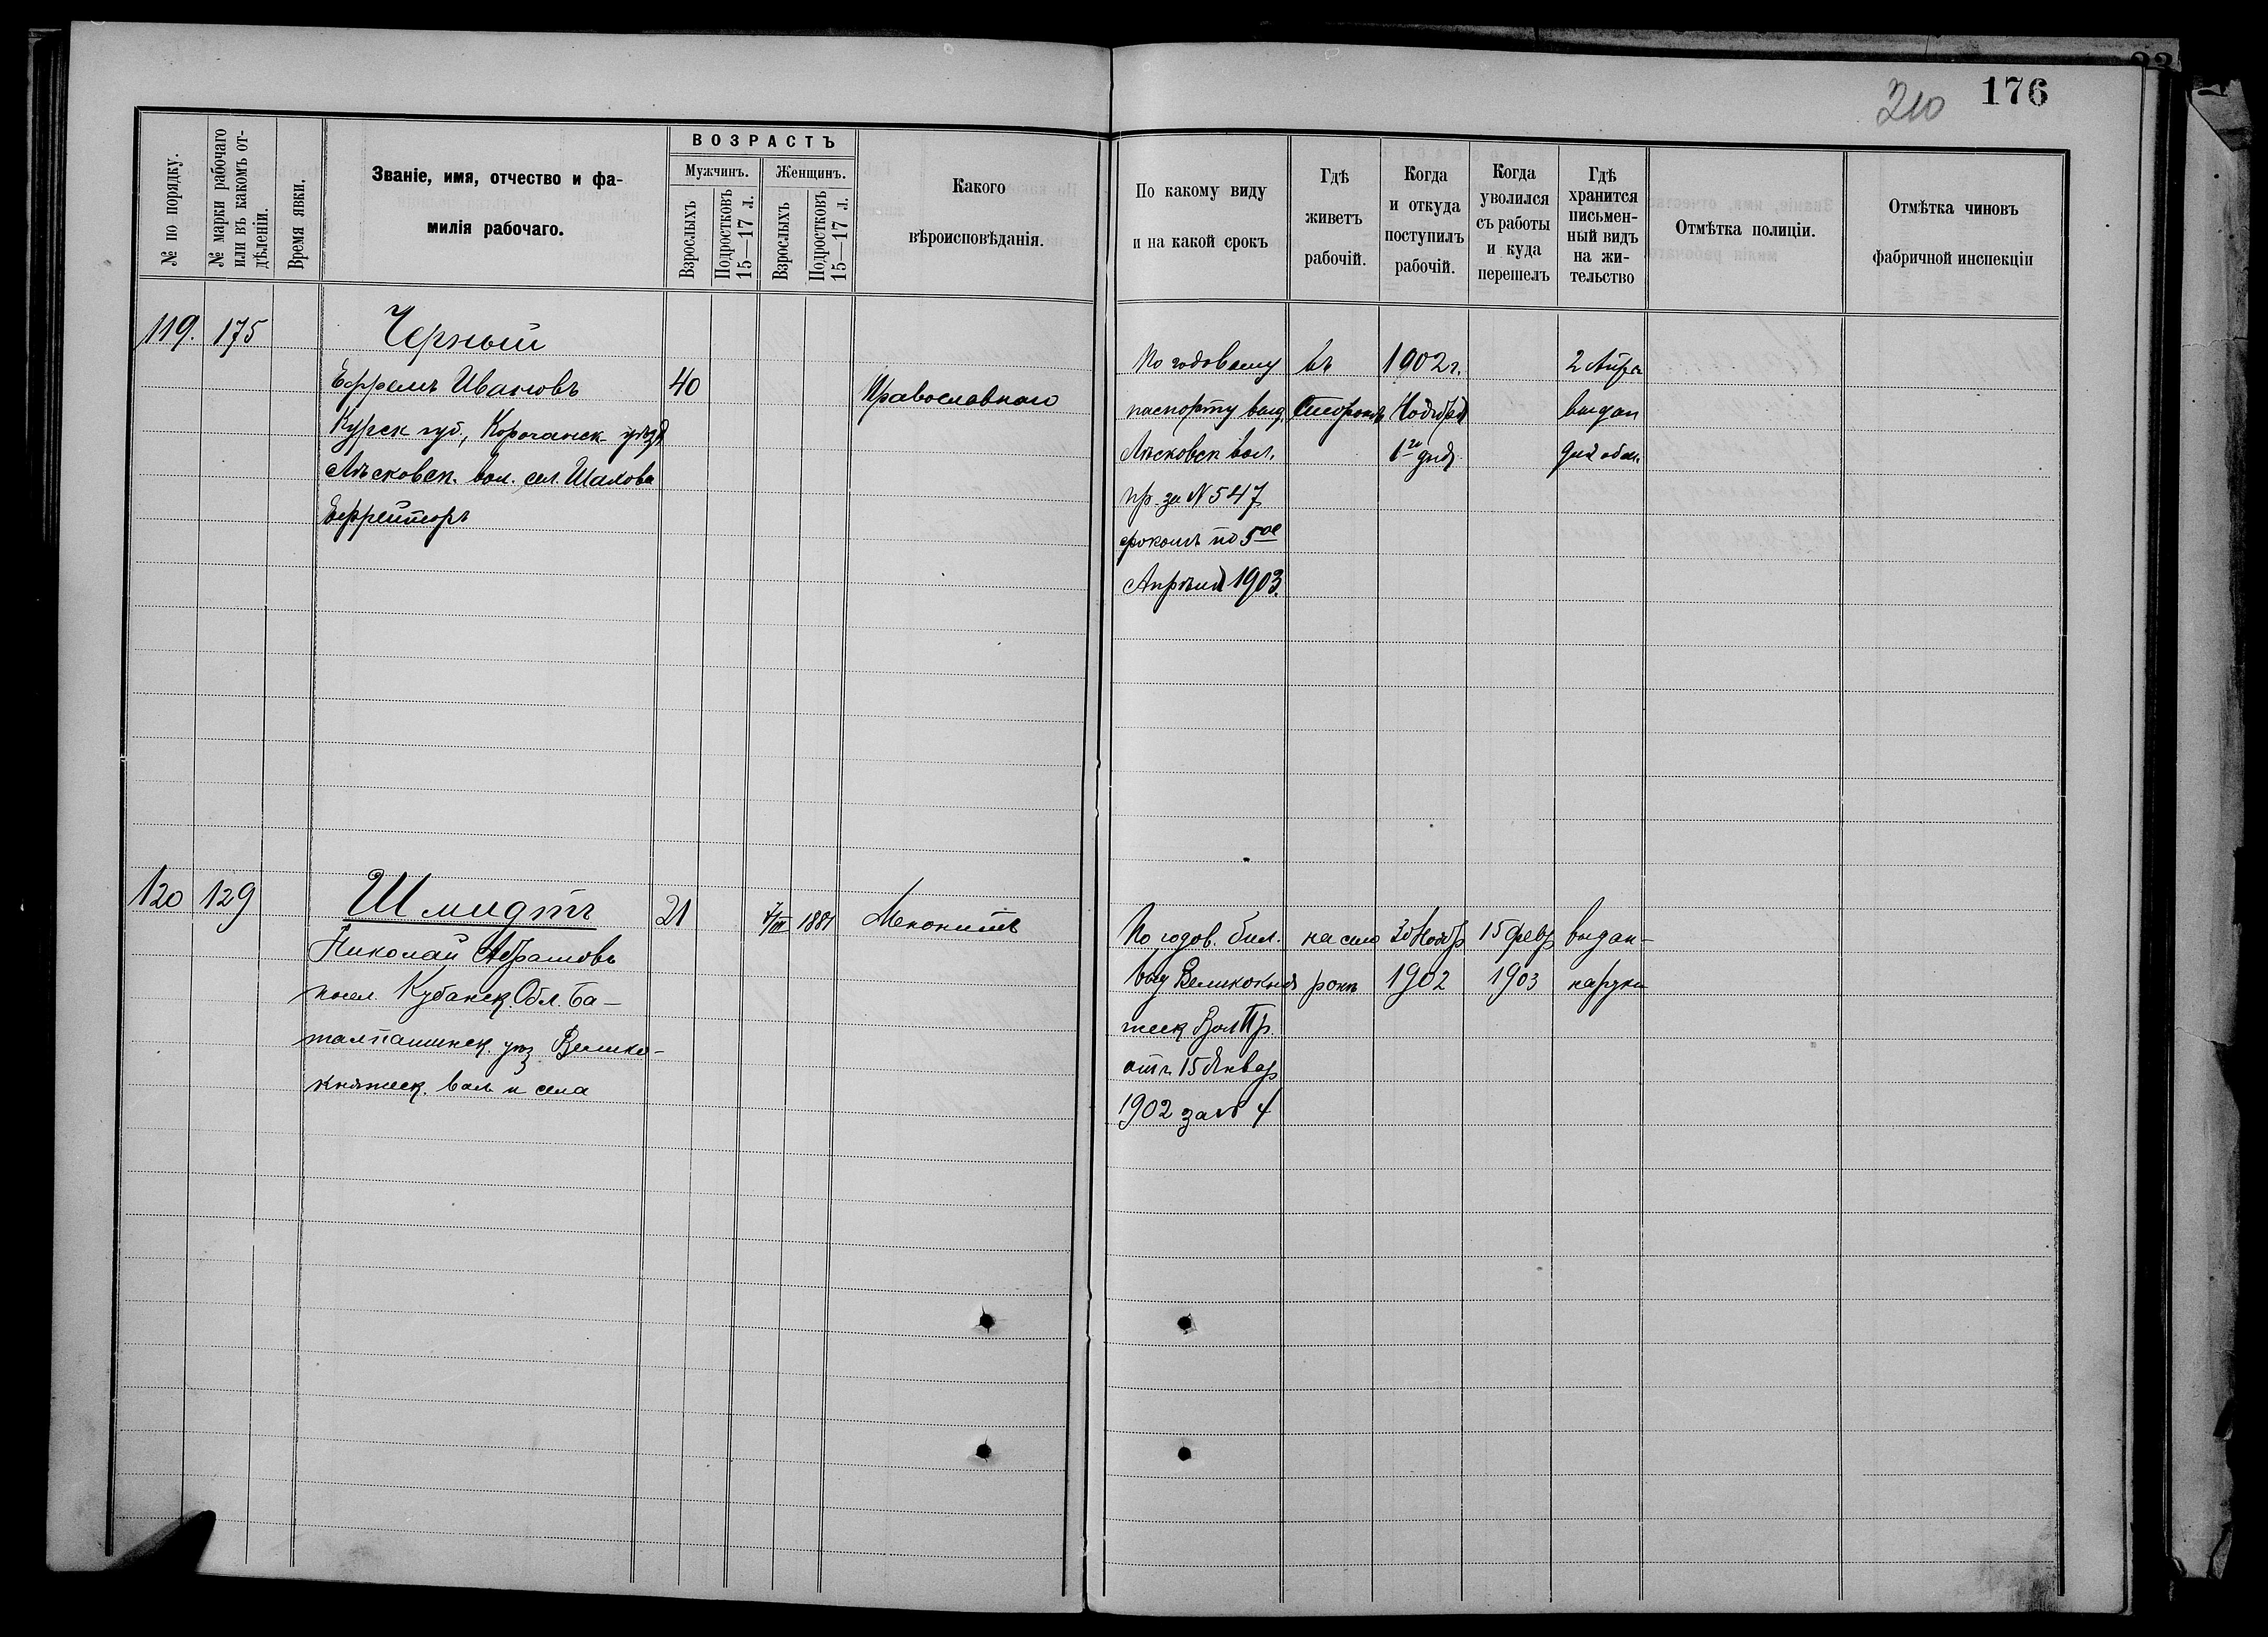 176
210
№ по порядку.
№ марки рабочаго или въ какомъ отдѣленіи.
Время явки.
Званіе, имя, отчество и фа-
милія рабочаго.
ВОЗРАСТЪ
Мужчинъ. Женщинъ.
Взрослыхъ
Подростковъ 15—17 л.
Взрослыхъ
Подростковъ 15—17 л.
Какого
вѣроисповѣданія.
По какому виду
и на какой срокъ
Гдѣ
живетъ
рабочій.
Когда
и откуда
поступилъ
рабочій.
Когда
уволился
съ работы
и куда
перешелъ
Гдѣ
хранится
письмен-
ный видъ
на жи-
тельство
Отмѣтка полиціи.
Отмѣтка чиновъ
фабричной инспекціи
119. 175
Черный
Ефремъ Ивановъ 40 Православнаго
Курск губ., Корочанск. уѣзд
Лѣсковск. вол. сел. Шахова
Ефрейторъ
По годовому
паспорту выд.
Лѣсковск вол.
пр. за N 547
срокомъ по 5ое
Апрѣля 1903.
въ
Сторонѣ
1902 г.
Ноября
1го дня
2 Апр
выдан
для обм.
120 129
Шмидтъ 21 1881 Менонитъ
Николай Абрамовъ
посел. Кубанск. Обл. Ба-
талпашинск. уѣз. Велико-
княжеск. вол. и села
По годов. бил.
выд Великокня
жеск Вол Пр.
отъ 15 Январ
1902 за № 4
на сто
ронѣ
30 Ноябр
1902
15 февр
1903
выдан-
наруки